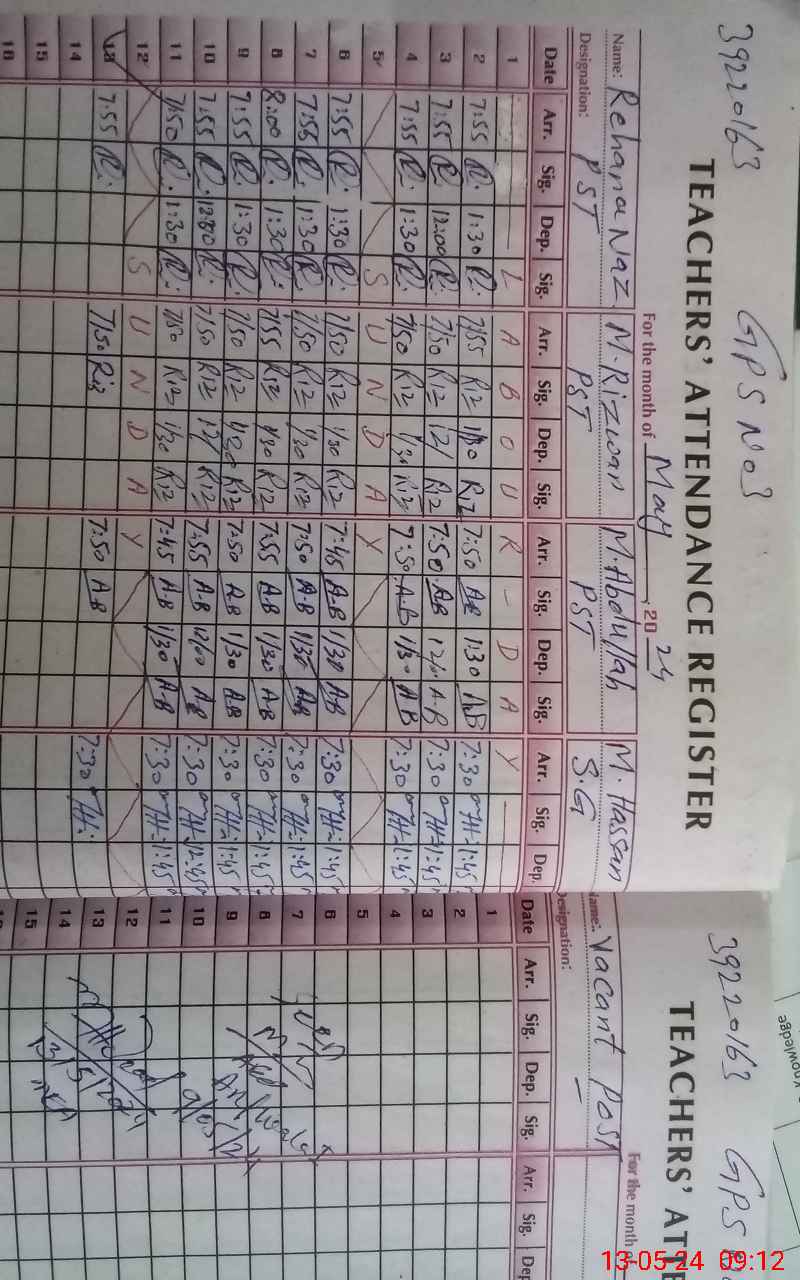 39220163 GPS No3
TEACHERS' ATTENDANCE REGISTER
For the month of May, 2024
Name: Rehana Naz M. Rizwan M. Abdullah M. Hassan
Designation: PST PST PST S.G
Date Arr. Sig. Dep. Sig. Arr. Sig. Dep. Sig. Arr. Sig. Dep. Sig. Arr. Sig. Dep.
1 L A B O U R - D A Y
2 7:55 1:30 7/55 Riz 1/30 Riz 7:50 AB 1:30 AB 7:30 1:45
3 7:55 12:00 7/50 Riz 12/ Riz 7:50 AB AB 7:30 1:45
4 7:55 1:30 7/50 Riz 1/30 Riz 7:50 AB 1/30 AB 7:30 1:45
5 S U N D A Y
6 7:55 1:30 7/50 Riz 1/30 Riz 7:45 AB 1/30 AB 7:30 1:45
7 7:55 1:30 7/50 Riz 1/30 Riz 7:50 AB 1/30 AB 7:30 1:45
8 8:00 1:30 7/55 Riz 1/30 Riz 7:55 AB 1/30 AB 7:30 1:45
9 7:55 1:30 7/50 Riz 1/30 Riz 7:50 AB 1/30 AB 7:30 1:45
10 7:55 7/50 Riz 12/ Riz 7:55 AB AB 7:30 12:45
11 7:50 1:30 7/50 Riz 1/30 Riz 7:45 AB 1/30 AB 7:30 1:45
12 S U N D A Y
13 7:55 7/50 Riz 7:50 AB 7:30
14
15
16
39220163 GPS
TEACHERS' ATTE
For the month of
Name: Vacant Post
Designation: -
Date Arr. Sig. Dep. Sig. Arr. Sig. Dep
1
2
3
4
5
6
7
8
9
10
11
12
13
14
15
Knowledge
13-05-24 09:12